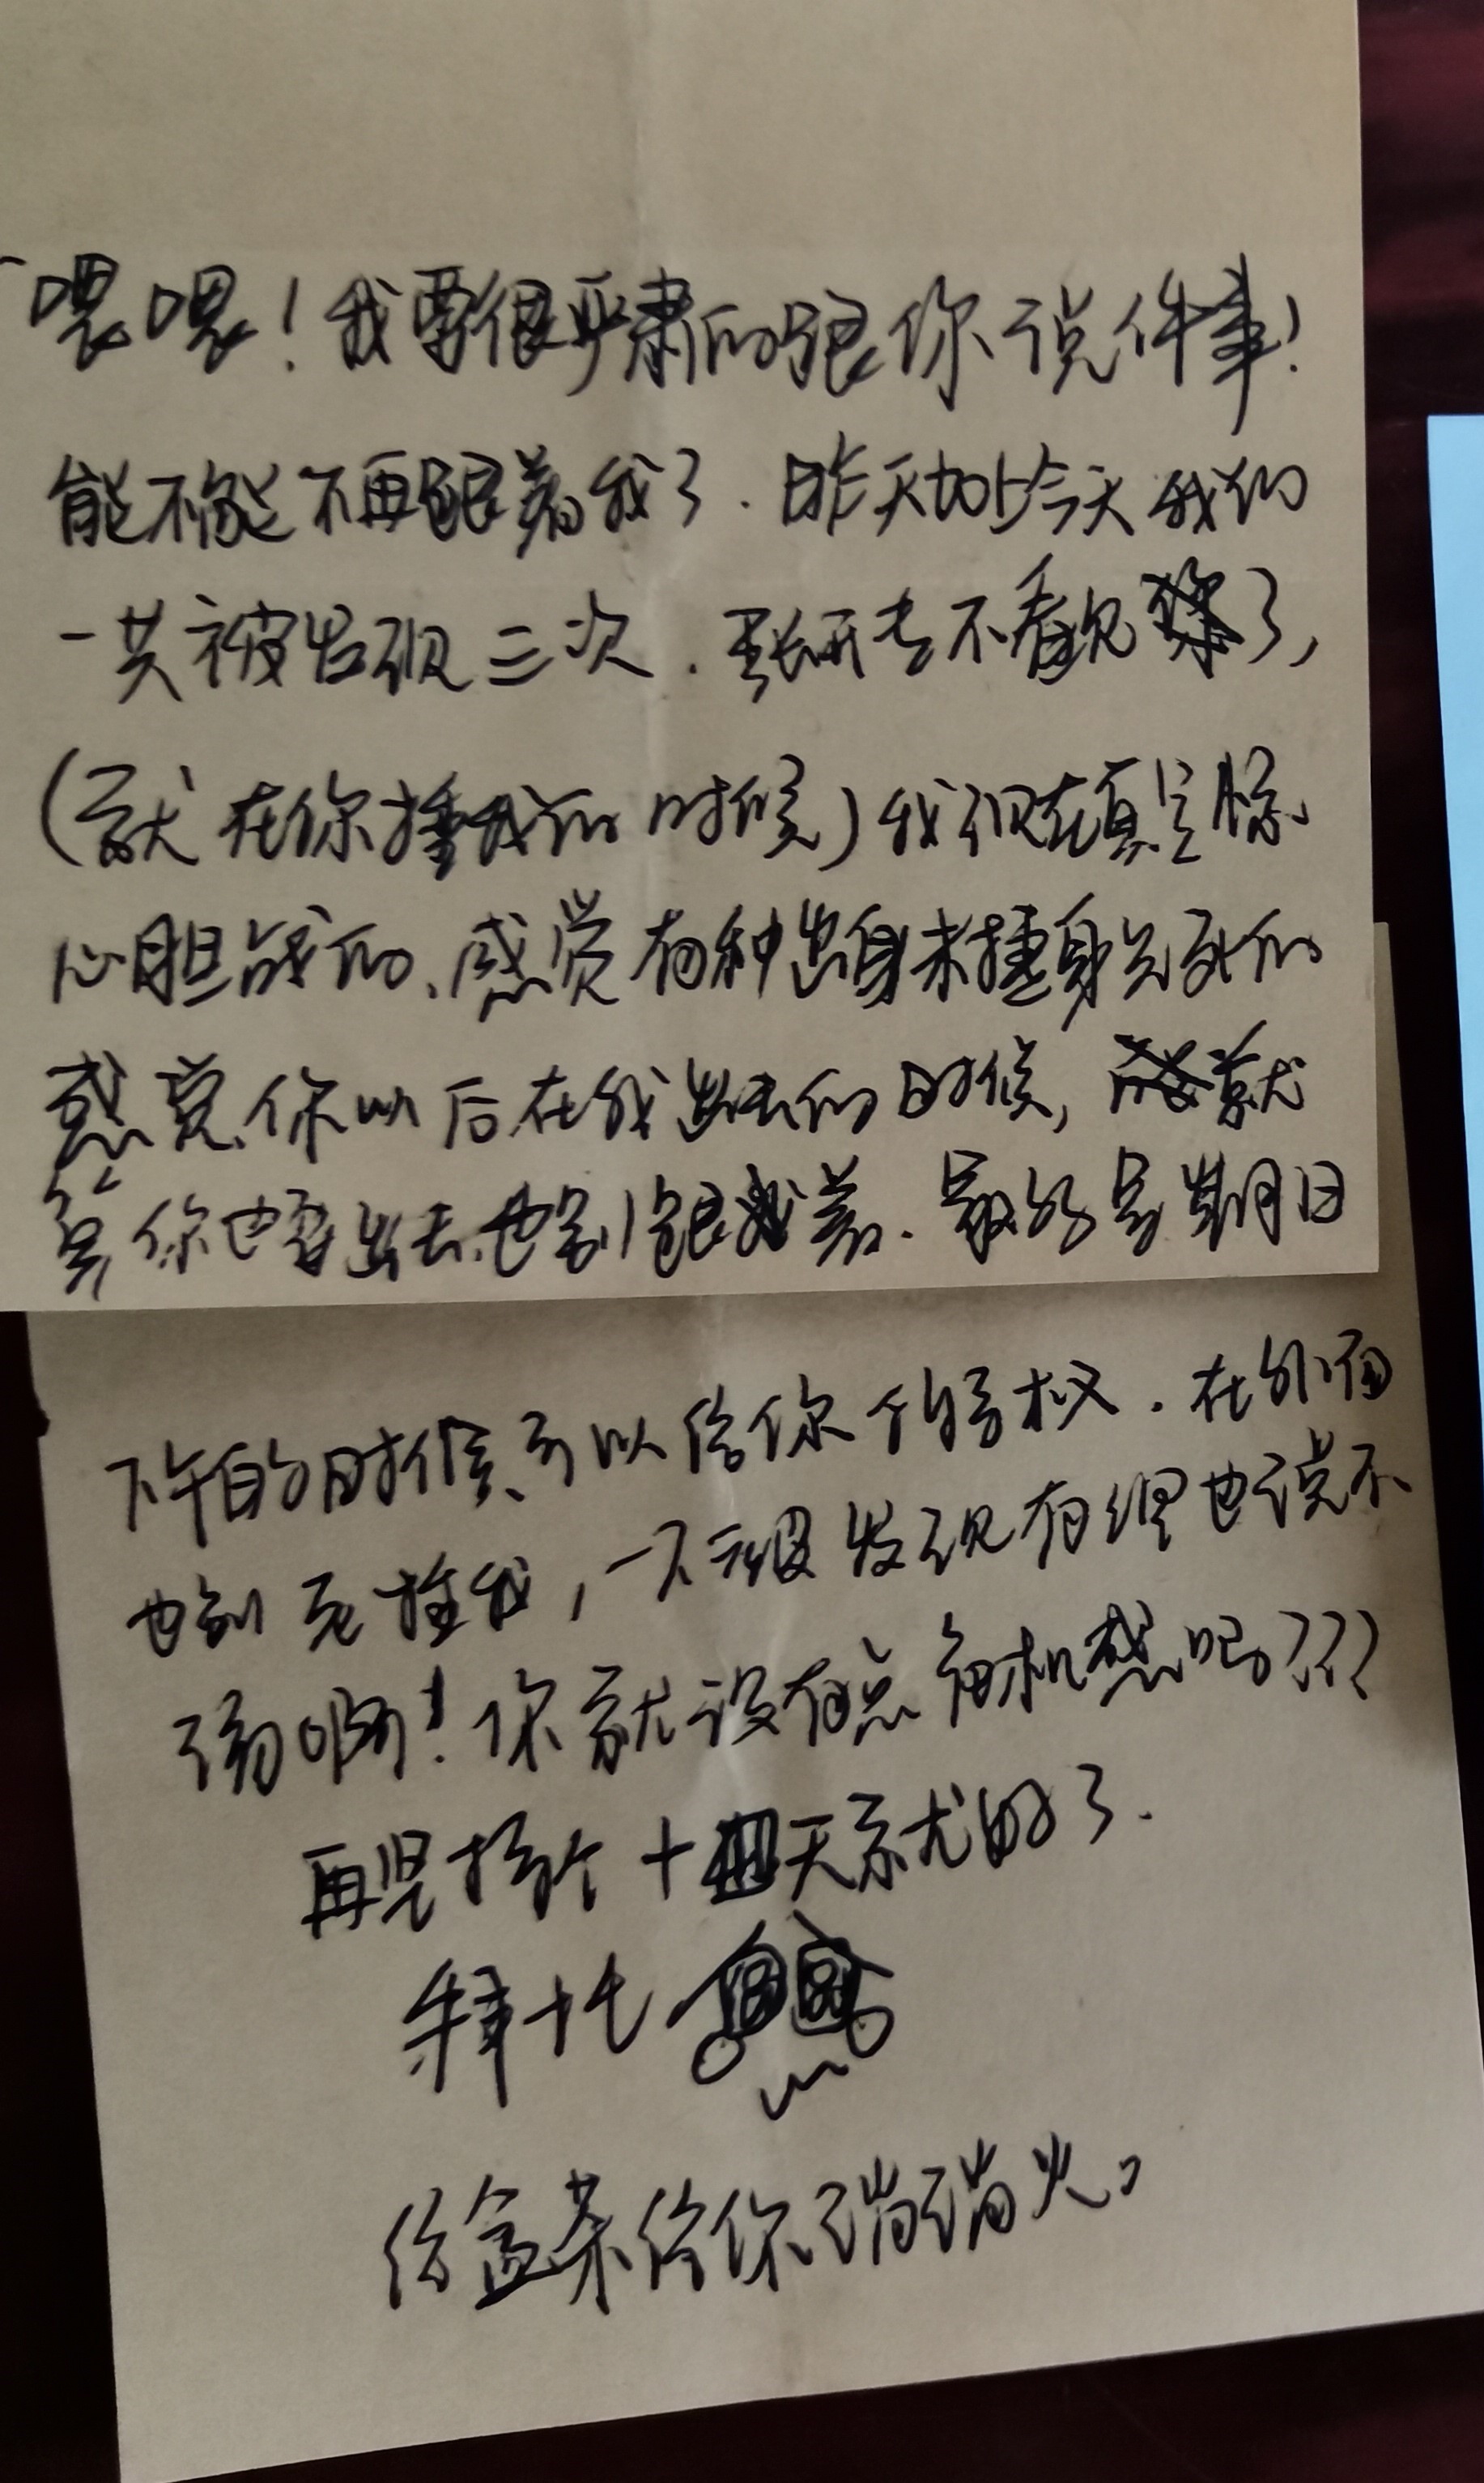 喂喂！我要很严肃的跟你说件事！
能不能不再跟着我了．昨天加上今天我们
一共被发现三次．张开老不看见了，
（就在你捶我的时候）我现在真是惊
心胆战的、感觉有种出身未捷身先死的
感觉、你以后在我出去的时候，就
算你也要出去、也别跟我着．最好是星期日
下午的时候、可以给你个特权．在外面
也别死拴我，一不被发现有理也说不
清啊！你就没有点危机感吗？？？
再坚持个十四天就好了．
拜托
给盒茶给你消消火。